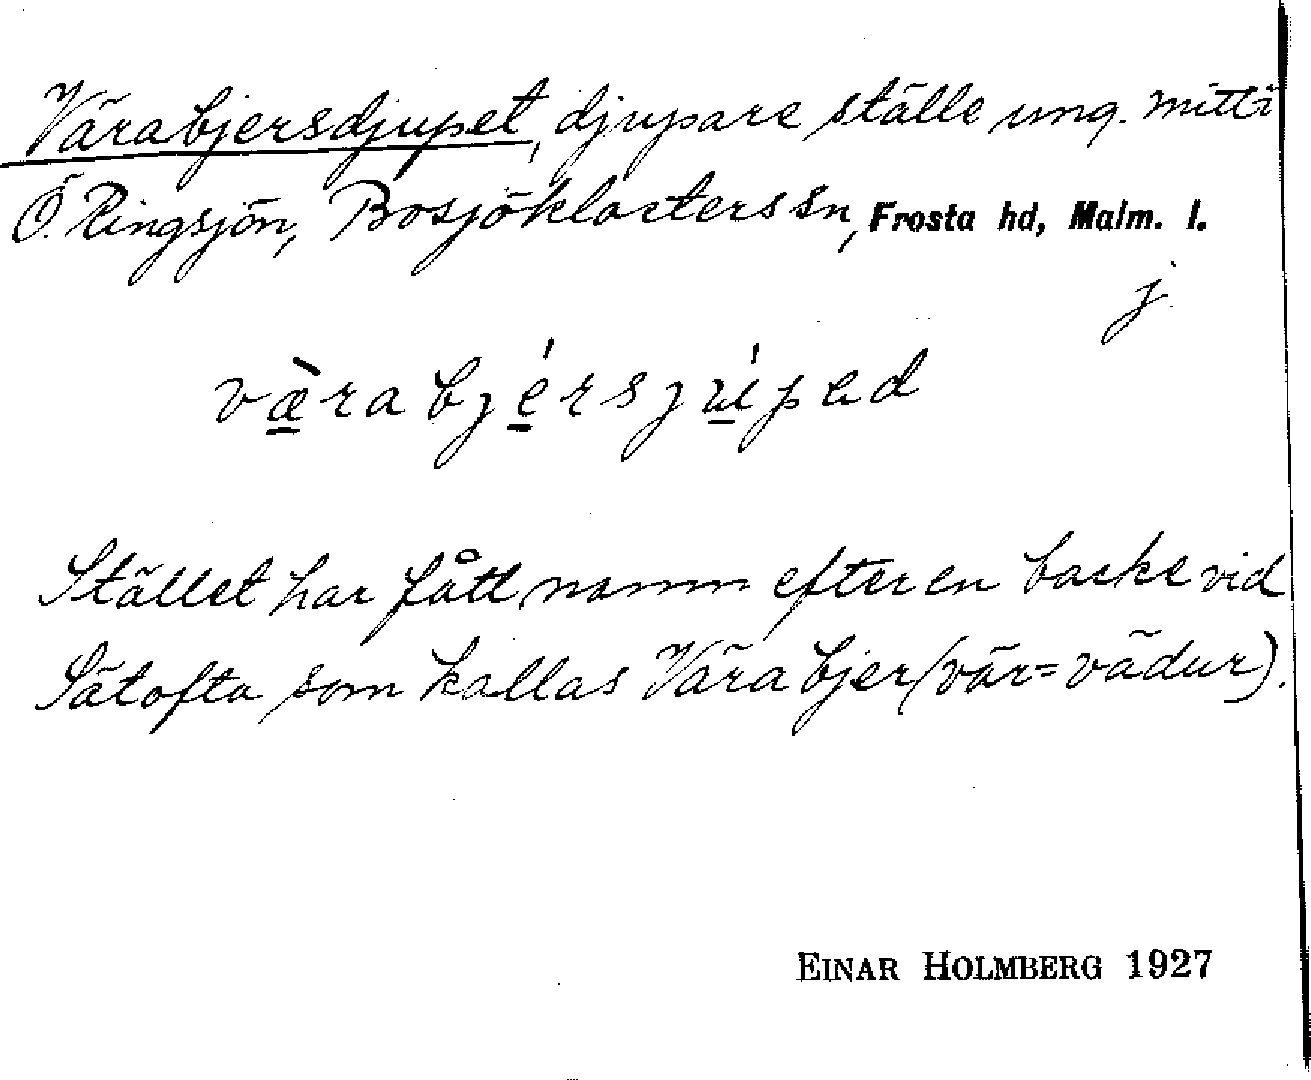 Värabjersdjupet, djupare ställe ung. mitt i
Ö. Ringsjön, Bosjöklosters sn, Frosta hd, Malm. l.
j
væ̀rabjérsjúpad
Stället har fått namn efter en backe vid
Sätofta som kallas Värabjer (vär = vädur).
EINAR HOLMBERG 1927